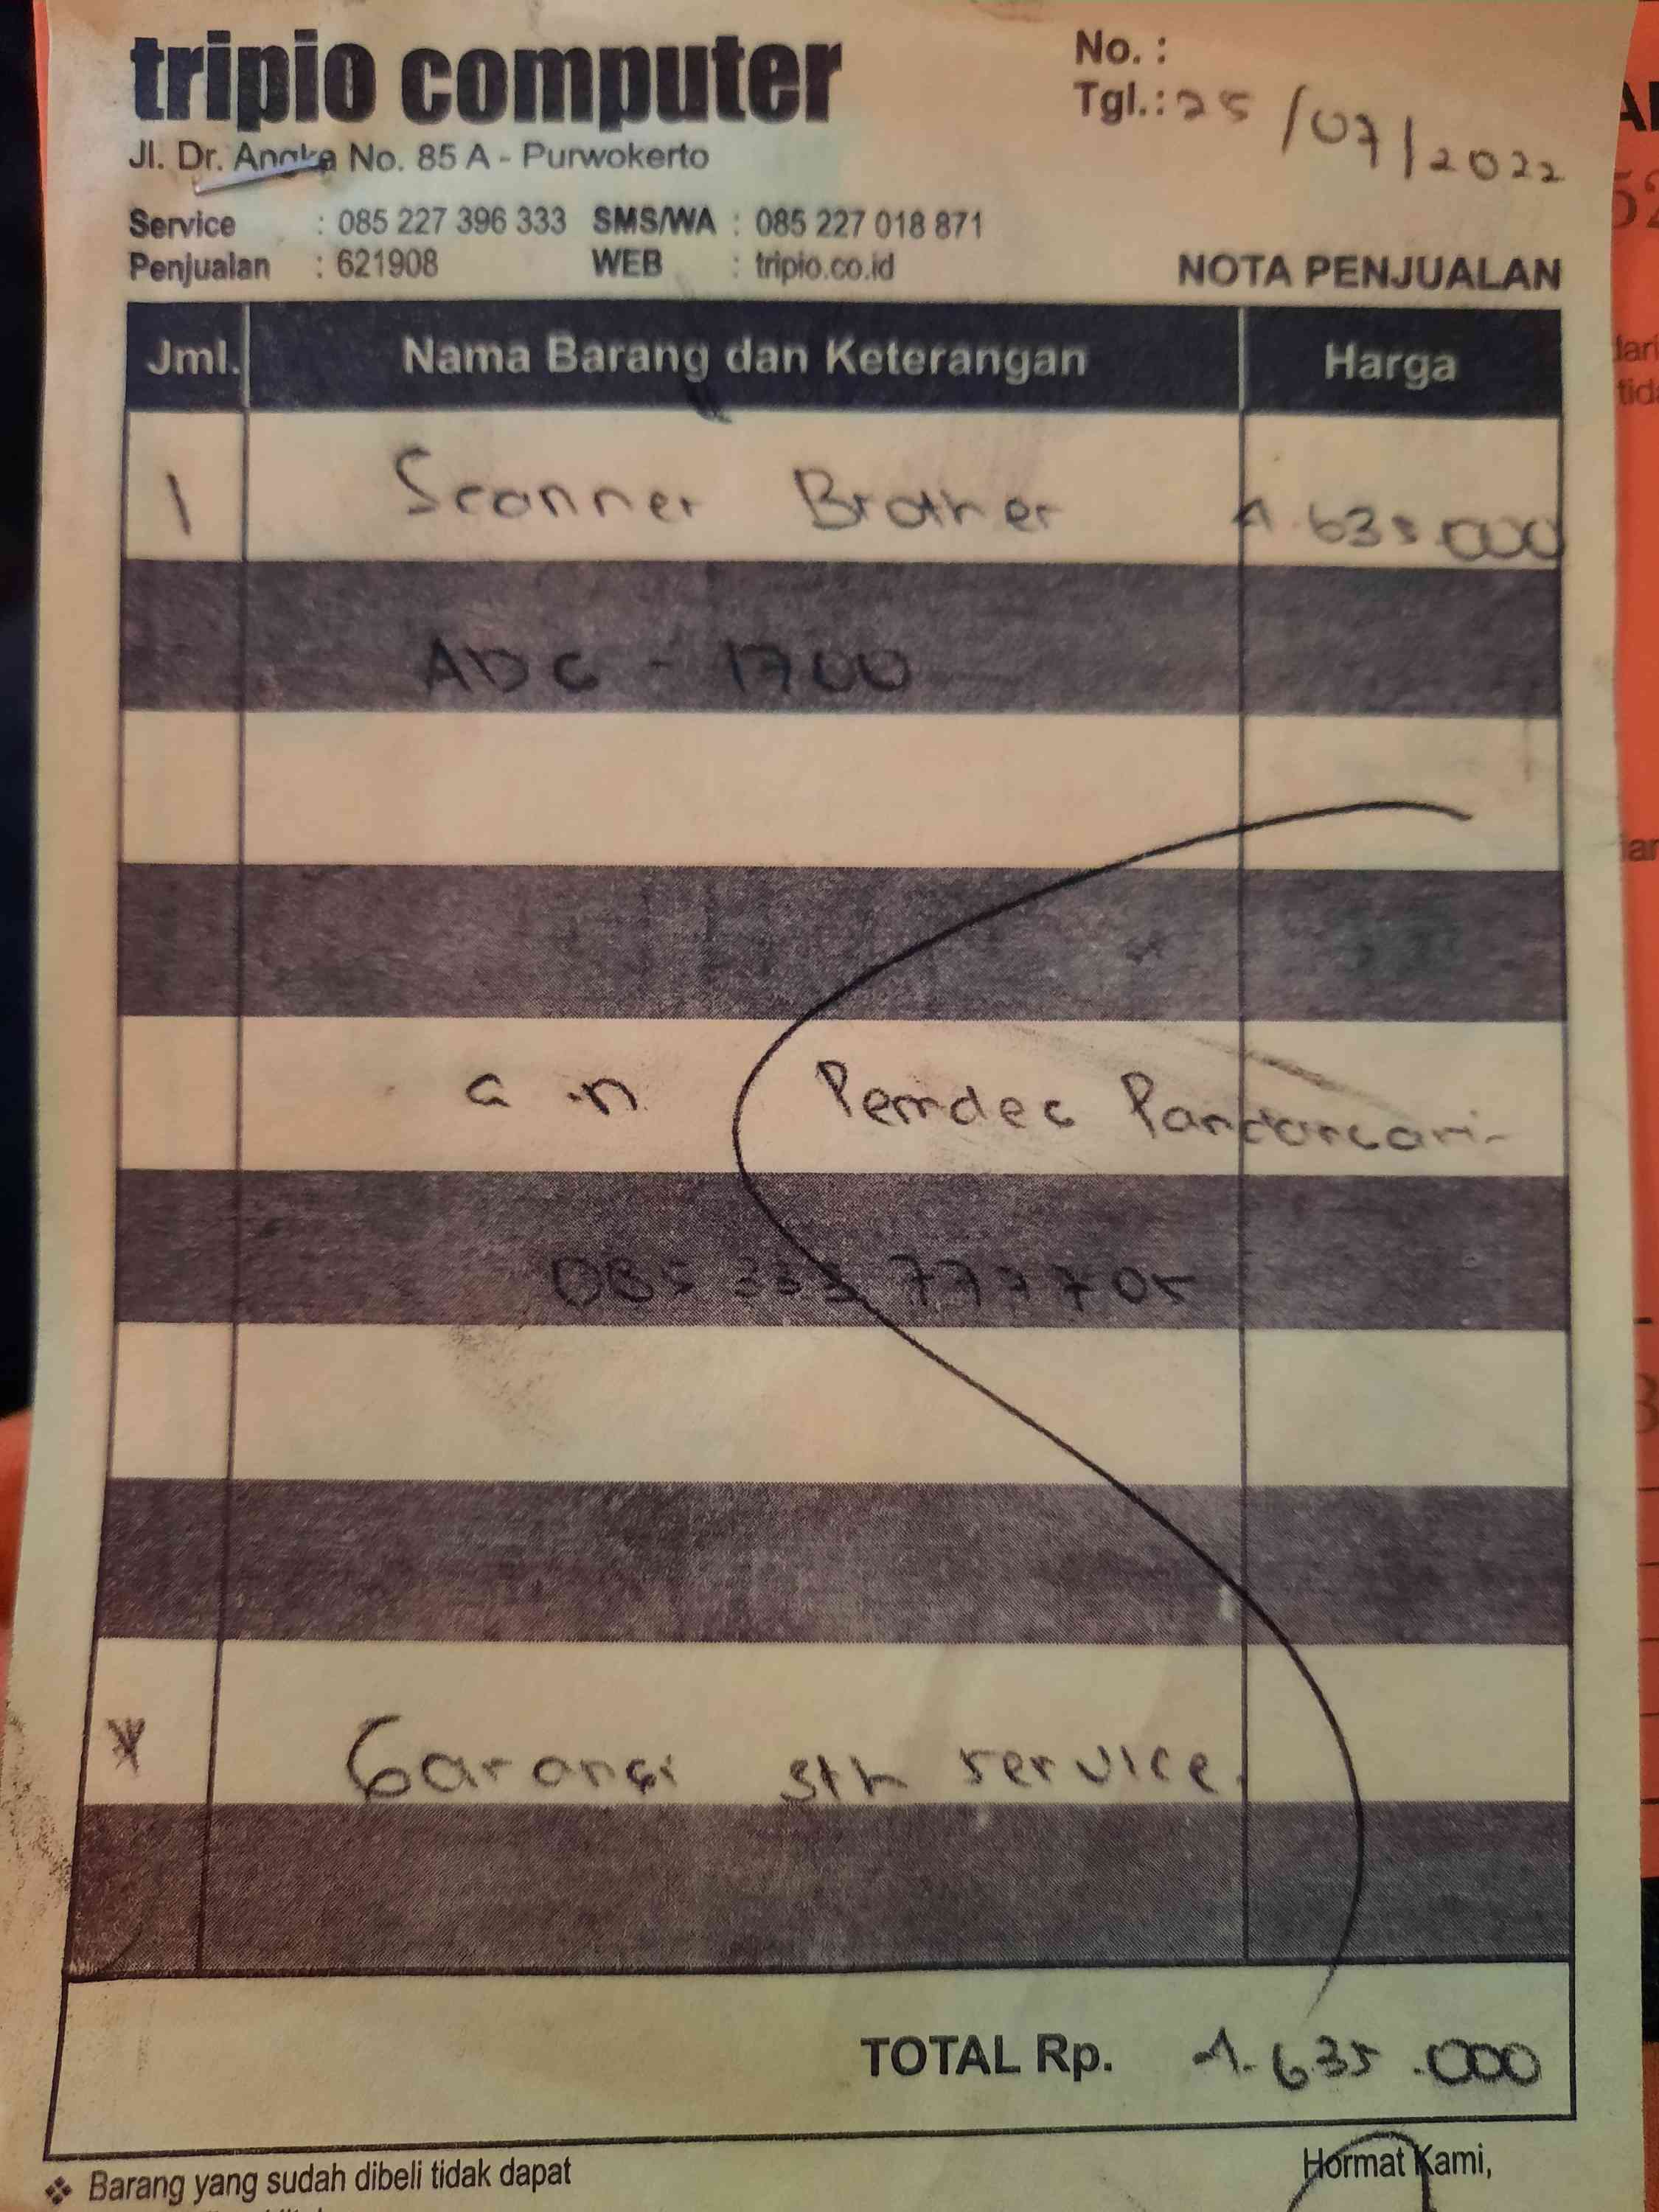 tripio computer
No. :
Tgl.: 25/07/2022
Jl. Dr. Angka No. 85 A - Purwokerto
Service : 085 227 396 333 SMS/WA : 085 227 018 871
Penjualan : 621908 WEB : tripio.co.id
NOTA PENJUALAN
Jml. Nama Barang dan Keterangan Harga
1 Scanner Brother 4.635.000
ADC - 1700
a.n Pemdes
085 333 777 705
* Garansi service.
TOTAL Rp. 4.635.000
❖ Barang yang sudah dibeli tidak dapat
Hormat Kami,